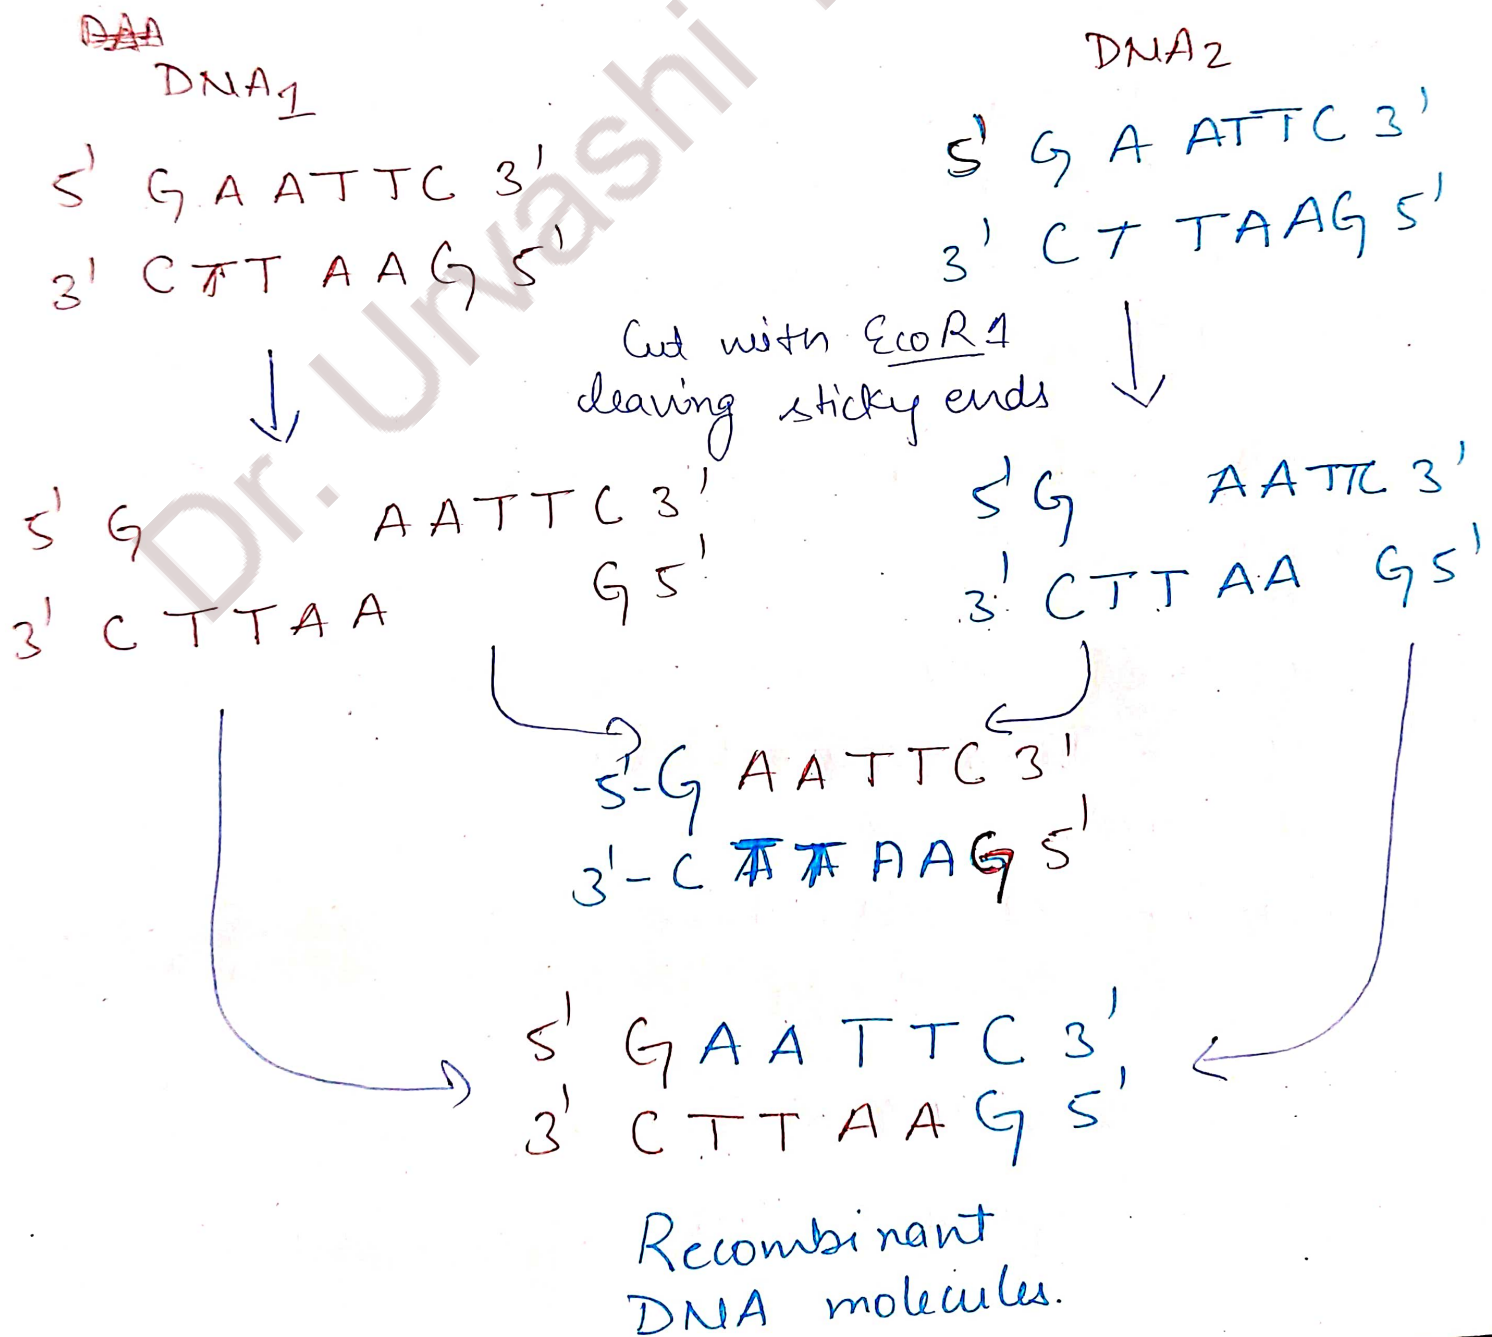 DNA1
5' G A A T T C 3'
3' C T T A A G 5'
DNA2
5' G A ATTC 3'
3' C T TAAG 5'
Cut with EcoR1
cleaving sticky ends
5' G A A T T C 3'
G 5'
3' C T T A A
5' G A A T T C 3'
3' C T T A A G 5'
5'-G A A T T C 3'
3'-C T T A A G 5'
5' G A A T T C 3'
3' C T T A A G 5'
Recombinant
DNA molecules.
Dr. Urvashi